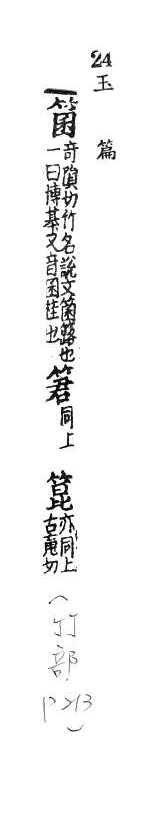 24
玉篇
箘奇隕切竹名說文箘簬也
一曰博棊又音囷桂也
䇹同上
箟亦同上
古切
(竹部
P213)